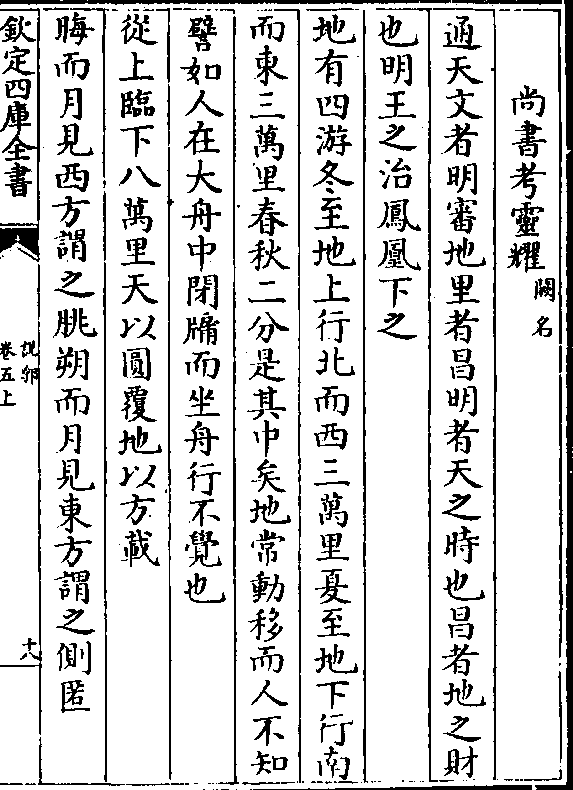 尚書考靈耀闕名
通天文者明審地里者昌明者天之時也昌者地之財
也明王之治鳳凰下之
地有四游冬至地上行北而西三萬里夏至地下行南
而東三萬里春秋二分是其中矣地常動移而人不知
譬如人在大舟中閉牖而坐舟行不覺也
從上臨下八萬里天以圓覆地以方載
晦而月見西方謂之朓朔而月見東方謂之側匿
欽定四庫全書
說郛
卷五上
十八